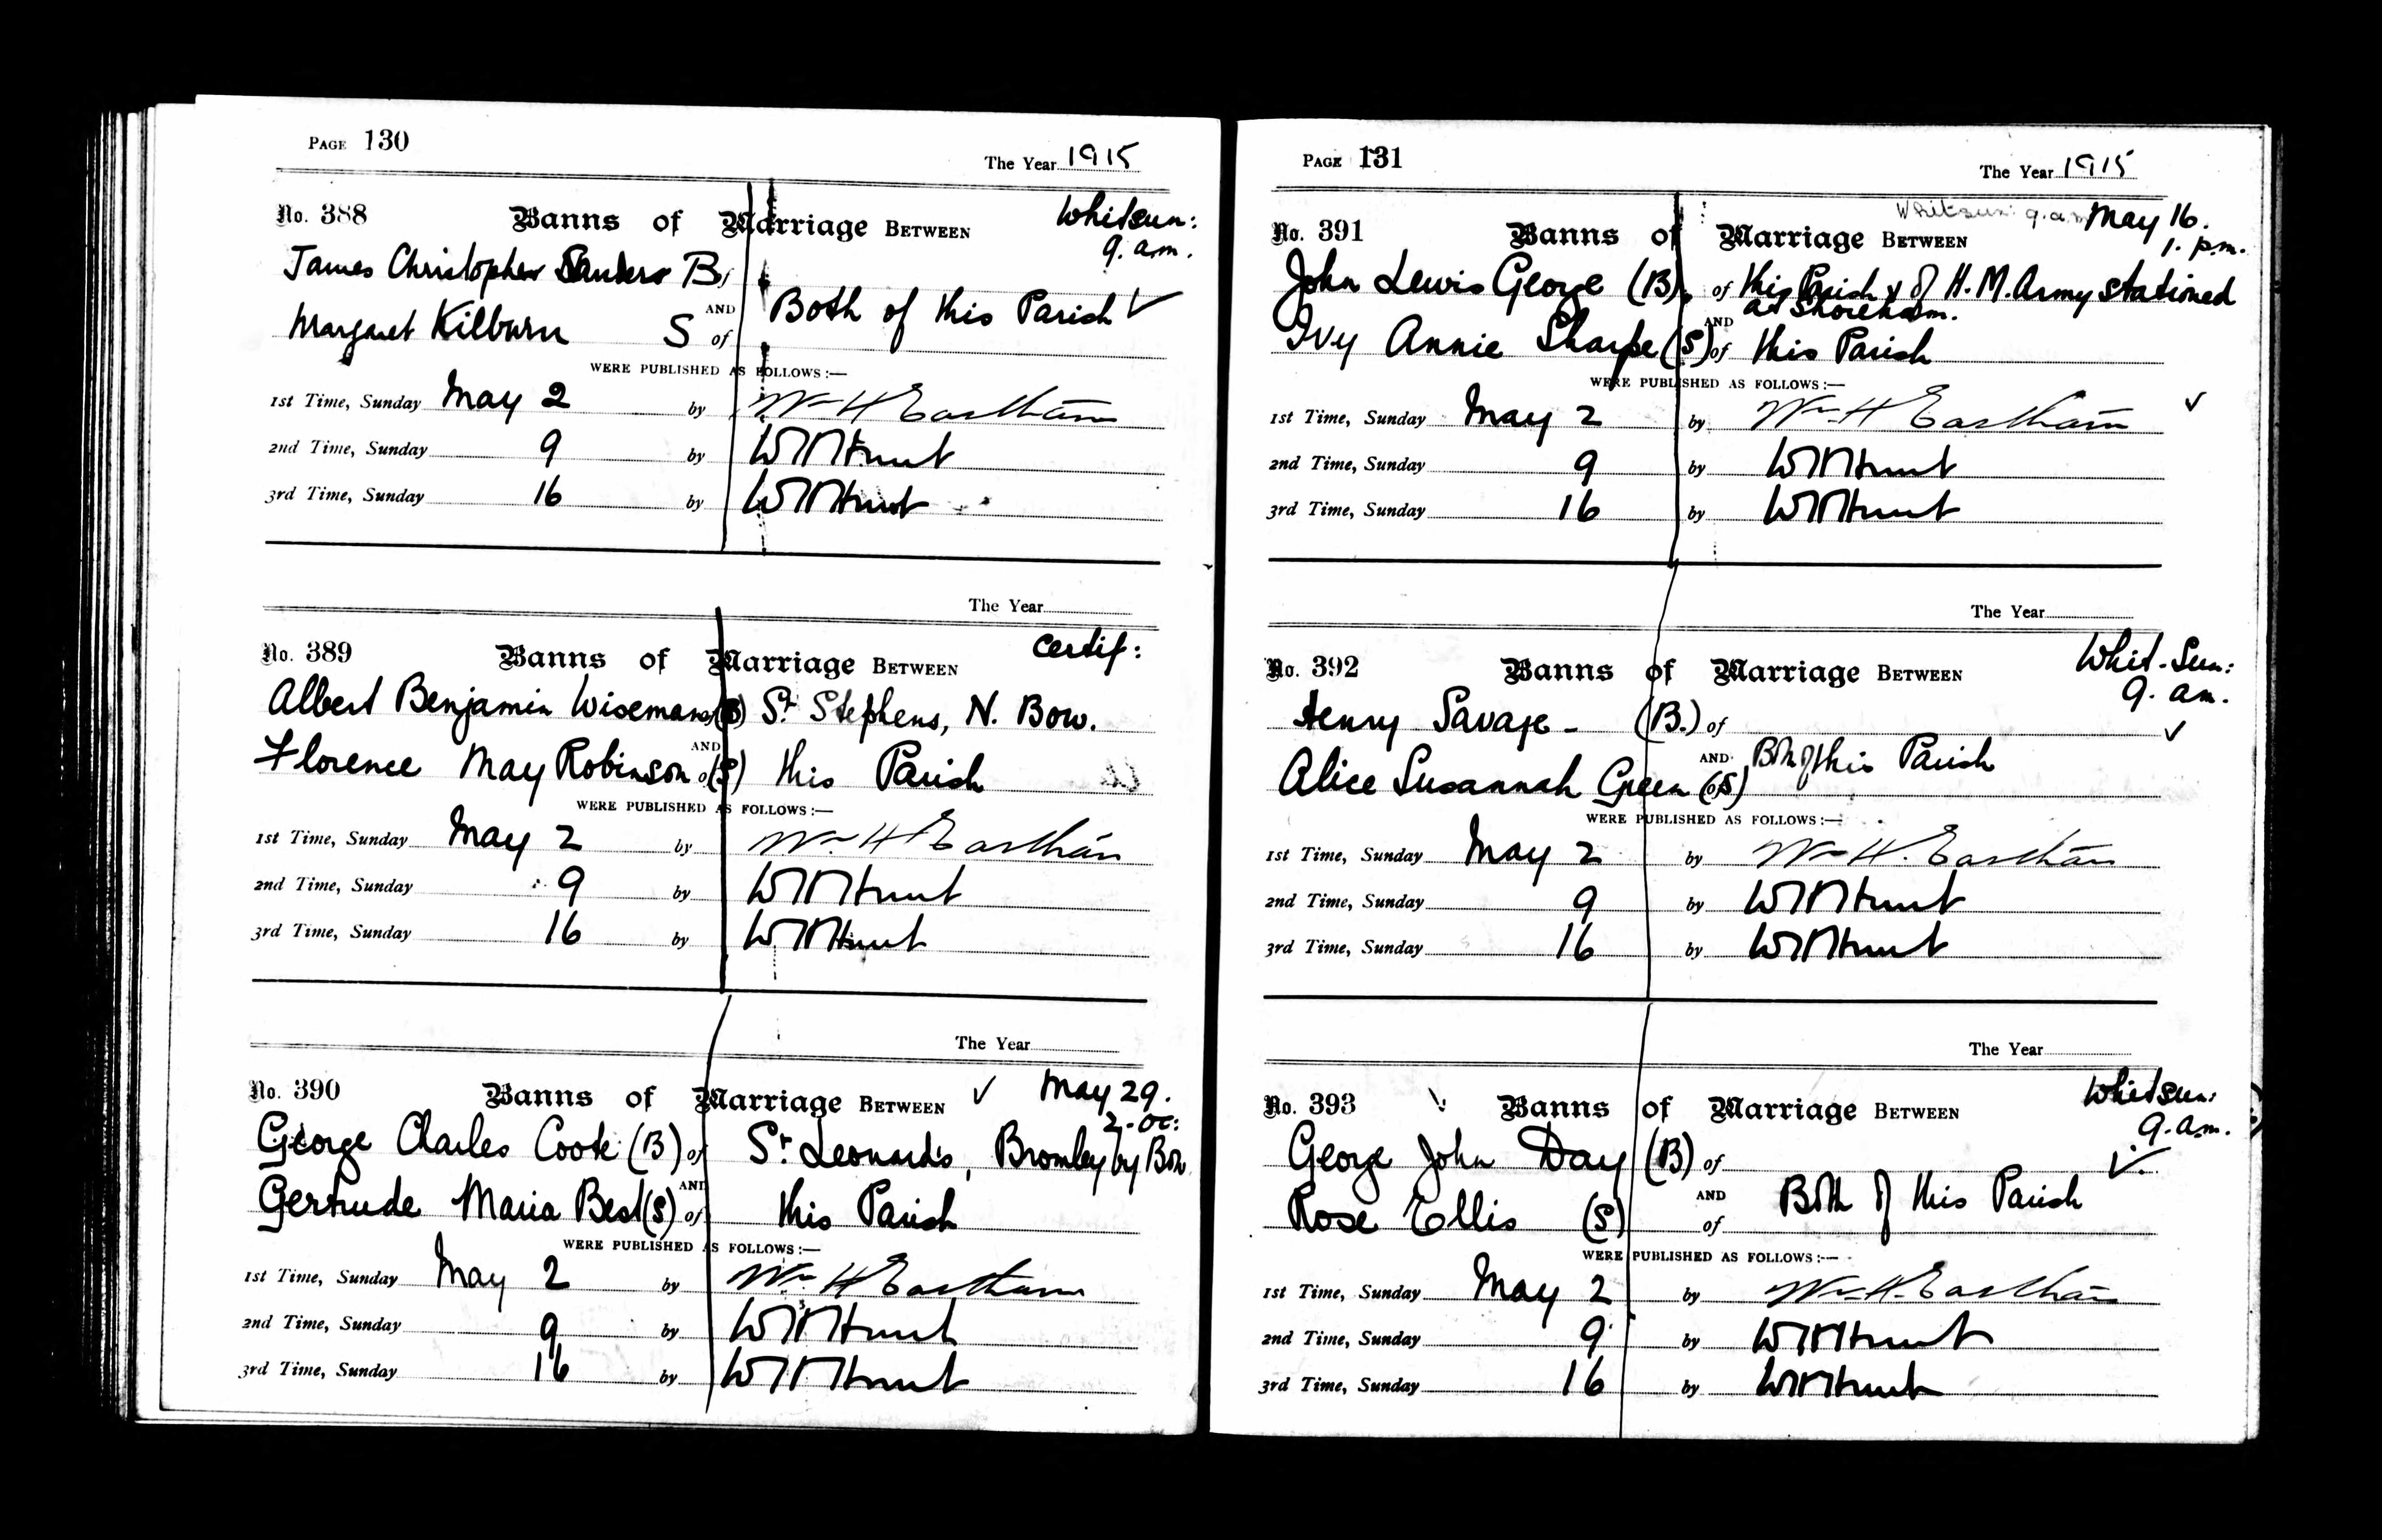 PAGE 130
The Year 1915
No. 388 Banns of Marriage BETWEEN Whitsun:
9. a.m.
James Christopher Sanders B,
AND Both of this Parish ✓
Margaret Kilburn S of
WERE PUBLISHED AS FOLLOWS:—
1st Time, Sunday May 2 by Wm H Eastham
2nd Time, Sunday 9 by W Hunt
3rd Time, Sunday 16 by W Hunt
The Year
No. 389 Banns of Marriage BETWEEN Certif:
Albert Benjamin Wiseman (B) St Stephens, N. Bow.
AND
Florence May Robinson of (S) this Parish
WERE PUBLISHED AS FOLLOWS:—
1st Time, Sunday May 2 by Wm H Eastham
2nd Time, Sunday 9 by W Hunt
3rd Time, Sunday 16 by W Hunt
The Year
No. 390 Banns of Marriage BETWEEN ✓ May 29.
2. oc:
George Charles Cook (B) of St Leonards, Bromley by Bow
AND
Gertrude Maria Best (S) of this Parish
WERE PUBLISHED AS FOLLOWS:—
1st Time, Sunday May 2 by Wm H Eastham
2nd Time, Sunday 9 by W Hunt
3rd Time, Sunday 16 by W Hunt
PAGE 131
The Year 1915
Whitsun: 9. a.m May 16.
No. 391 Banns of Marriage BETWEEN 1. p.m.
John Lewis George (B). of this Parish & of H.M. Army stationed
at Shoreham.
AND
Ivy Annie Sharpe (S) of this Parish
WERE PUBLISHED AS FOLLOWS:—
1st Time, Sunday May 2 by Wm H Eastham ✓
2nd Time, Sunday 9 by W Hunt
3rd Time, Sunday 16 by W Hunt
The Year
No. 392 Banns of Marriage BETWEEN Whit-Sun:
9. am.
Henry Savage - (B.) of ✓
AND Both of this Parish
Alice Susannah Green of (S)
WERE PUBLISHED AS FOLLOWS:—
1st Time, Sunday May 2 by Wm H. Eastham
2nd Time, Sunday 9 by W Hunt
3rd Time, Sunday 16 by W Hunt
The Year
No. 393 Banns of Marriage BETWEEN Whitsun:
9. a.m.
George John Day (B) of ✓
AND Both of this Parish
Rose Ellis (S) of
WERE PUBLISHED AS FOLLOWS:—
1st Time, Sunday May 2 by Wm H. Eastham
2nd Time, Sunday 9 by W Hunt
3rd Time, Sunday 16 by W Hunt